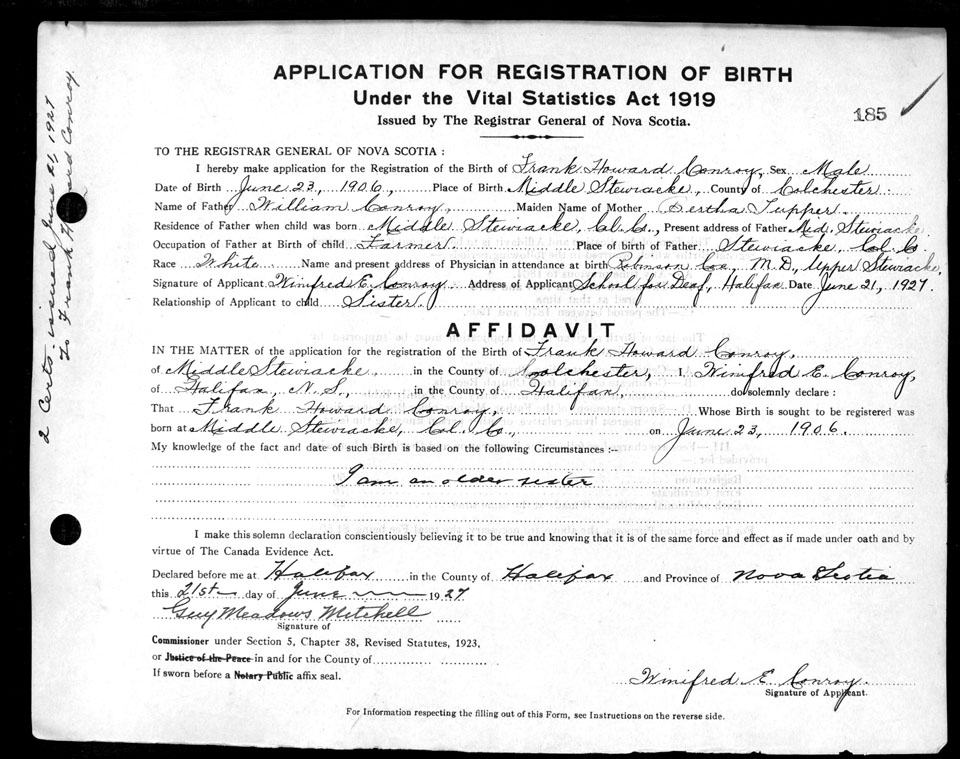 APPLICATION FOR REGISTRATION OF BIRTH
Under the Vital Statistics Act 1919
Issued by The Registrar General of Nova Scotia.
185
2 Certs. issued June 21, 1927
To Frank Howard Conroy.
TO THE REGISTRAR GENERAL OF NOVA SCOTIA :
I hereby make application for the Registration of the Birth of Frank Howard Conroy, Sex Male
Date of Birth June 23, 1906, Place of Birth Middle Stewiacke, County of Colchester.
Name of Father William Conroy, Maiden Name of Mother Bertha Tupper.
Residence of Father when child was born Middle Stewiacke, Col. Co., Present address of Father Mid. Stewiacke
Occupation of Father at Birth of child Farmer. Place of birth of Father Stewiacke, Col. Co.
Race White Name and present address of Physician in attendance at birth Robinson Cox, M.D., Upper Stewiacke,
Signature of Applicant Winifred E. Conroy Address of Applicant School for Deaf, Halifax Date June 21, 1927.
Relationship of Applicant to child Sister.
AFFIDAVIT
IN THE MATTER of the application for the registration of the Birth of Frank Howard Conroy,
of Middle Stewiacke in the County of Colchester, I Winifred E. Conroy,
of Halifax, N. S., in the County of Halifax, do solemnly declare :
That Frank Howard Conroy, Whose Birth is sought to be registered was
born at Middle Stewiacke, Col. Co., on June 23, 1906.
My knowledge of the fact and date of such Birth is based on the following Circumstances :—
I am an older sister
I make this solemn declaration conscientiously believing it to be true and knowing that it is of the same force and effect as if made under oath and by
virtue of The Canada Evidence Act.
Declared before me at Halifax in the County of Halifax and Province of Nova Scotia
this 21st day of June 1927
Guy Meadows Mitchell
Signature of
Commissioner under Section 5, Chapter 38, Revised Statutes, 1923,
or Justice of the Peace in and for the County of
If sworn before a Notary Public affix seal.
Winifred E Conroy
Signature of Applicant.
For Information respecting the filling out of this Form, see Instructions on the reverse side.